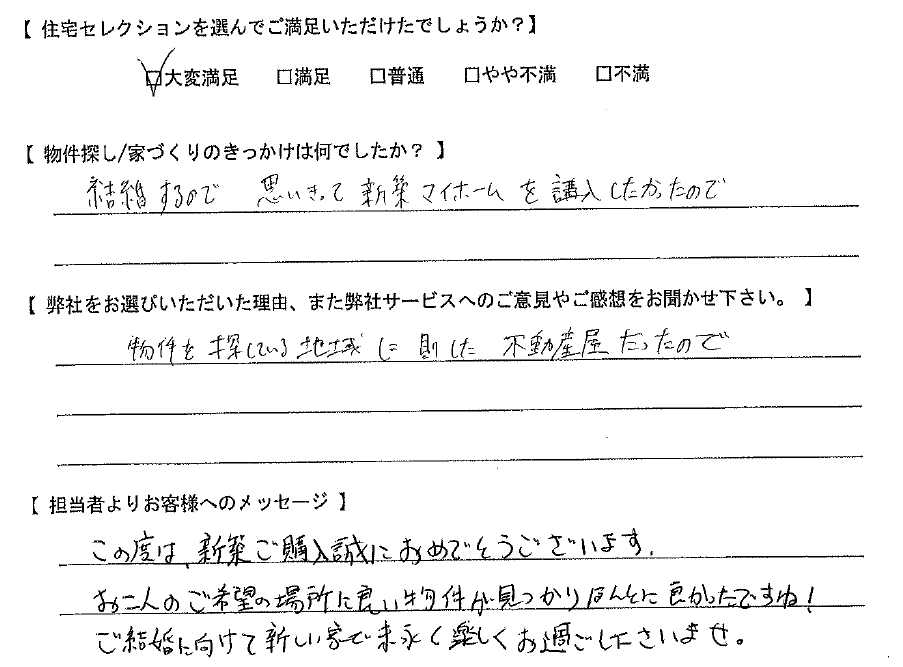 【 住宅セレクションを選んでご満足いただけたでしょうか？】
☑大変満足 □満足 □普通 □やや不満 □不満
【 物件探し/家づくりのきっかけは何でしたか？ 】
結婚するので 思いきって 新築マイホーム を 購入したかったので
【 弊社をお選びいただいた理由、また弊社サービスへのご意見やご感想をお聞かせ下さい。 】
物件を 探している 地域 に 則した 不動産屋だったので
【 担当者よりお客様へのメッセージ 】
この度は、新築ご購入誠におめでとうございます。
お二人のご希望の場所に良い物件が見つかりほんとに良かったですね！
ご結婚に向けて新しい家で末永く楽しくお過ごし下さいませ。